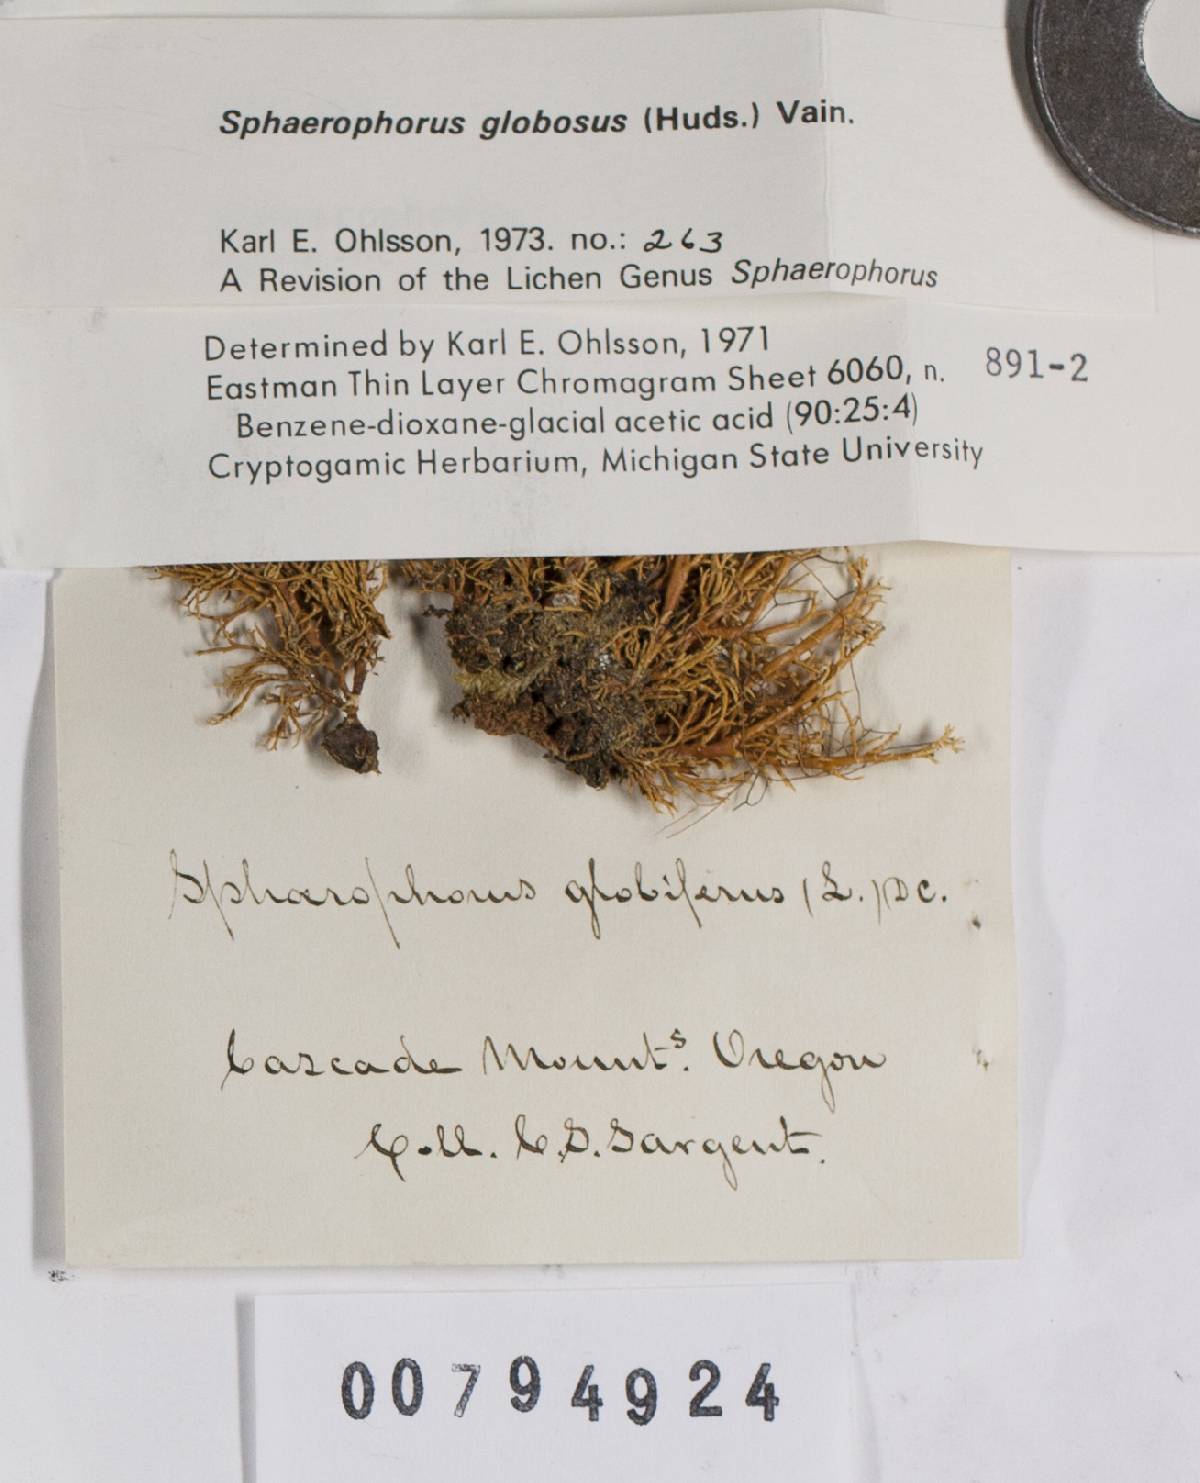 Sphaerophorus globosus (Huds.) Vain.
Karl E. Ohlsson, 1973. no.: 263
A Revision of the Lichen Genus Sphaerophorus
Determined by Karl E. Ohlsson, 1971
Eastman Thin Layer Chromagram Sheet 6060, n. 891-2
Benzene-dioxane-glacial acetic acid (90:25:4)
Cryptogamic Herbarium, Michigan State University
Sphaerophorus globiferus (L.) DC.
Cascade Mounts. Oregon
Coll. C.S. Sargent.
00794924